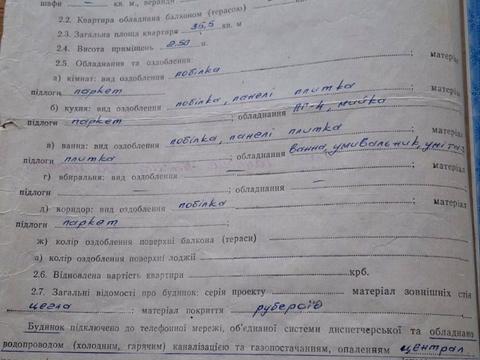 шафи — кв. м., веранди
2.2. Квартира обладнана балконом (терасою)
2.3. Загальна площа квартири 35,5 кв. м
2.4. Висота приміщень 2.50 м.
2.5. Обладнання та оздоблення:
а) кімнат: вид оздоблення побілка ; матеріал
підлоги паркет
б) кухня: вид оздоблення побілка, панелі плитка ; матеріал
підлоги паркет ; обладнання ПГ-4, мийка
в) ванна: вид оздоблення побілка, панелі плитка ; матеріал
підлоги плитка ; обладнання ванна, умивальник, унітаз
г) вбиральня: вид оздоблення — ; матеріал
підлоги — ; обладнання —
д) коридор: вид оздоблення побілка ; матеріал
підлоги паркет ;
ж) колір оздоблення поверхні балкона (тераси)
а) колір оздоблення поверхні лоджії
2.6. Відновлена вартість квартири крб.
2.7. Загальні відомості про будинок: серія проекту матеріал зовнішніх стін
цегла ; матеріал покриття рубероїд
Будинок підключено до телефонної мережі, об'єднаної системи диспетчерської та обладнано
водопроводом (холодним, гарячим) каналізацією та газопостачанням, опаленням централ